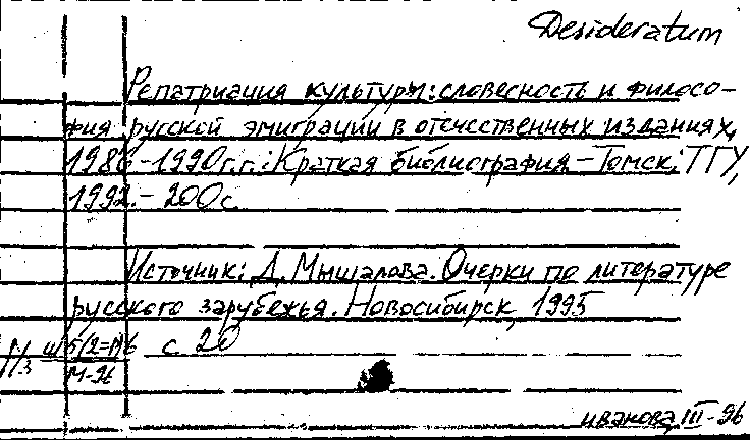 Desideratum
Репатриация культуры: словесность и филосо-
фия русской эмиграции в отечественных изданиях,
1986-1990г.г.: Краткая библиография. – Томск: ТГУ,
1992. – 200с.
Источник: Д. Мышалова. Очерки по литературе
русского зарубежья. Новосибирск, 1995
с 20
М-96
Иванова III-96